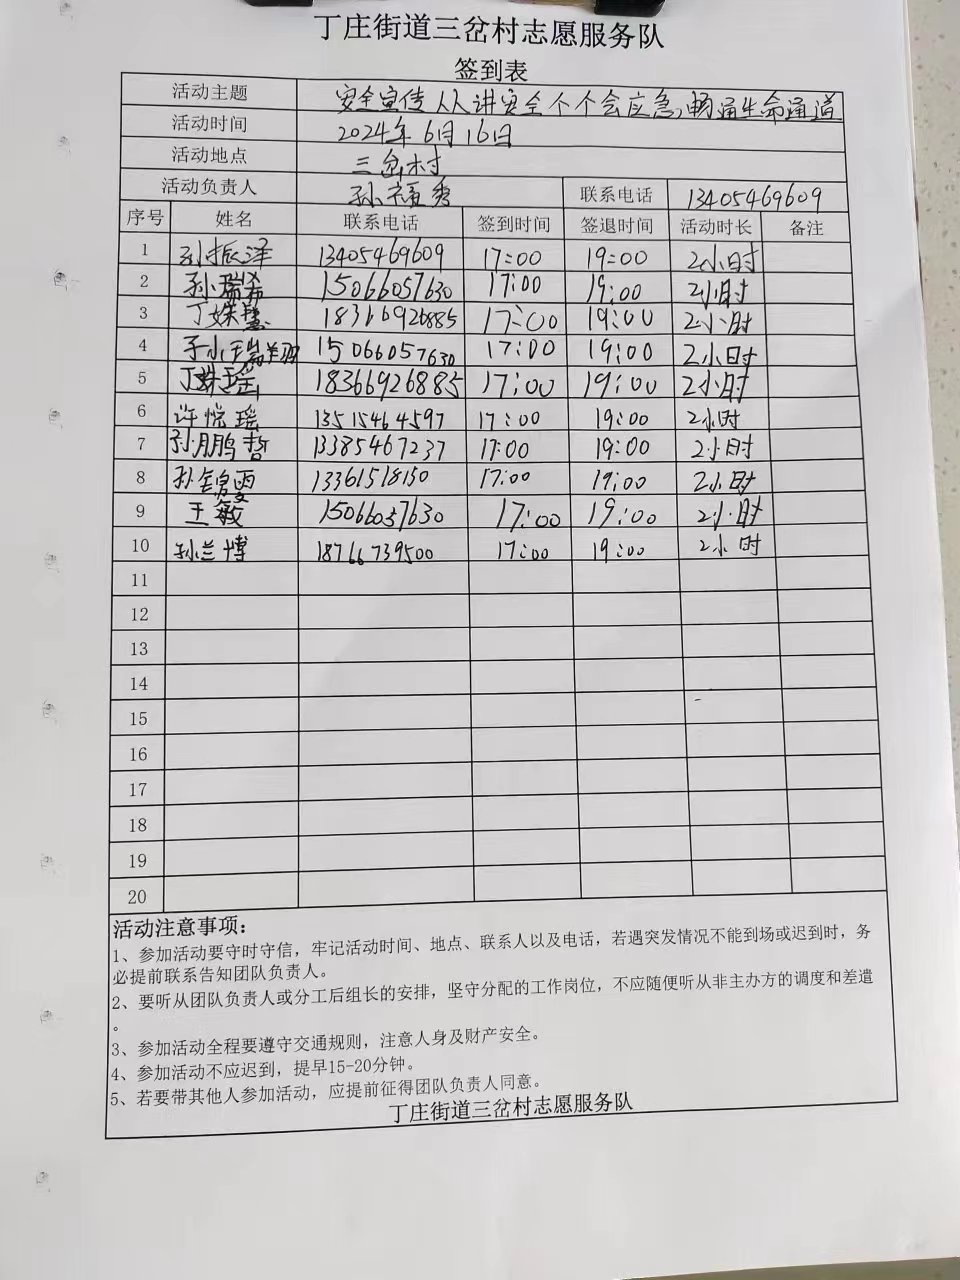 丁庄街道三岔村志愿服务队
签到表
活动主题 安全宣传 人人讲安全 个个会应急,畅通生命通道
活动时间 2024年6月16日
活动地点 三岔村
活动负责人 孙福秀 联系电话 13405469609
序号 姓名 联系电话 签到时间 签退时间 活动时长 备注
1 孙振泽 13405469609 17:00 19:00 2小时
2 孙瑞希 15066057630 17:00 19:00 2小时
3 丁姝慧 18366926885 17:00 19:00 2小时
4 15066057630 17:00 19:00 2小时
5 丁姝瑶 18366926885 17:00 19:00 2小时
6 许悦瑶 13515464597 17:00 19:00 2小时
7 孙鹏哲 13385467237 17:00 19:00 2小时
8 13361518150 17:00 19:00 2小时
9 王敏 15066057630 17:00 19:00 2小时
10 孙兰博 18766739500 17:00 19:00 2小时
11
12
13
14
15
16
17
18
19
20
活动注意事项:
1、参加活动要守时守信,牢记活动时间、地点、联系人以及电话,若遇突发情况不能到场或迟到时,务
必提前联系告知团队负责人。
2、要听从团队负责人或分工后组长的安排,坚守分配的工作岗位,不应随便听从非主办方的调度和差遣
。
3、参加活动全程要遵守交通规则,注意人身及财产安全。
4、参加活动不应迟到,提早15-20分钟。
5、若要带其他人参加活动,应提前征得团队负责人同意。
丁庄街道三岔村志愿服务队